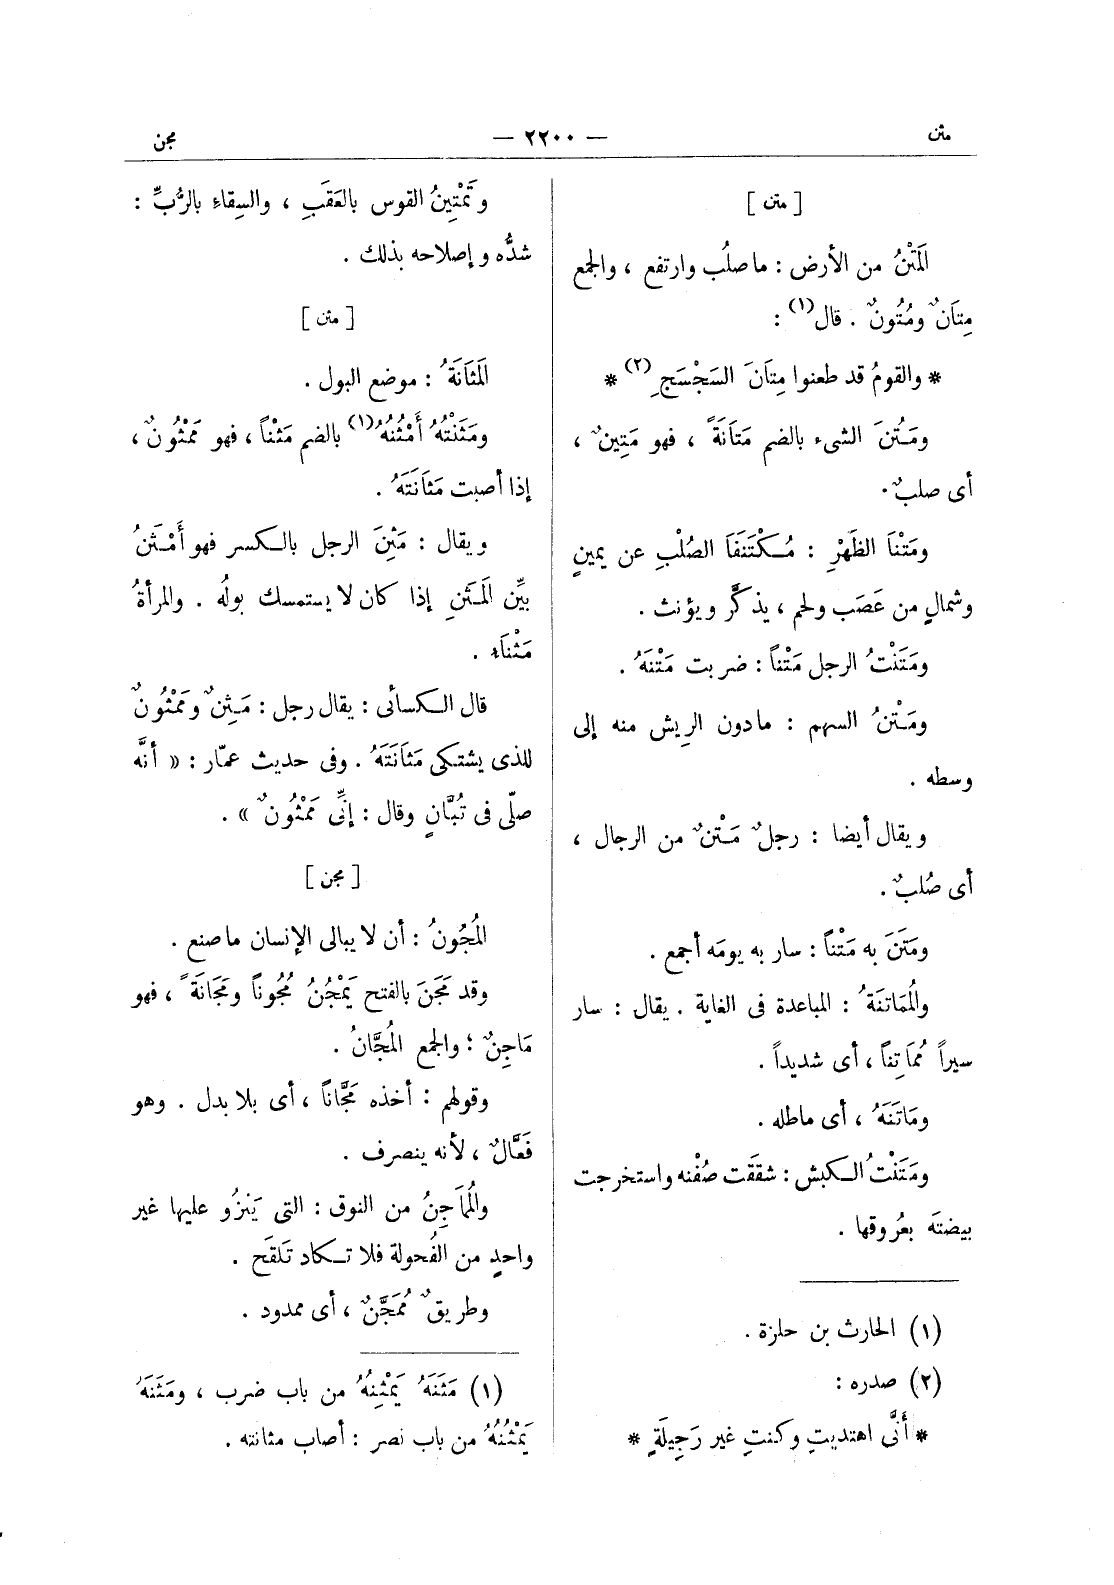 مثن
— ٢٢٠٠ —
مجن
[ متن ]
المَتْنُ من الأرض : ما صلُب وارتفع ، والجمع
مِتاَنٌ ومُتُونٌ . قال(١) :
* والقومُ قد طعنوا مِتاَنَ السَجْسَجِ(٢) *
ومَـتُنَ الشىء بالضم مَتاَنَةً ، فهو مَتِينٌ ،
أى صلبٌ .
ومَتْناَ الظَهْرِ : مُـكْتَنَفاَ الصُلْبِ عن يمينٍ
وشمالٍ من عَصَب ولحم ، يذكَّر ويؤنث .
ومَتَنْتُ الرجل مَتْناً : ضربت مَتْنَهُ .
ومَـتْنُ السهم : مادون الرِيش منه إلى
وسطه .
ويقال أيضا : رجلٌ مَـتْنٌ من الرجال ،
أى صُلبٌ .
ومَتَنَ به مَتْناً : سار به يومَه أجمع .
والمُمَاتَنَةُ : المباعدة فى الغاية . يقال : سار
سيراً مُمَاتِناً ، أى شديداً .
ومَاتَنَهُ ، أى ماطله .
ومَتَنْتُ الـكبش : شققت صُفْنه واستخرجت
بيضتَه بعُروقها .
(١) الحارث بن حلزة .
(٢) صدره :
* أَنَّى اهتديتِ وكنتِ غير رَجِيلَةٍ *
وتَمْتِينُ القوس بالعَقَبِ ، والسِقاءِ بالرُبِّ :
شدُّه وإصلاحه بذلك .
[ مثن ]
المَثاَنَةُ : موضع البول .
ومَثَنْتُهُ أَمْثُنُهُ(١) بالضم مَثْناً ، فهو مَمْثُونٌ ،
إذا أصبت مَثاَنَتَهُ .
ويقال : مَثِنَ الرجل بالـكسر فهو أَمْـثَنُ
بيِّن المَـثَنِ إذا كان لا يستمسك بولُه . والمرأةُ
مَـثْناَءُ .
قال الـكسائى : يقال رجل : مَـثِنٌ ومَمْثُونٌ
للذى يشتـكى مَثاَنَتَهُ . وفى حديث عمّار : « أنَّه
صلّى فى تُبَّانٍ وقال : إنِّى مَمْثُونٌ » .
[ مجن ]
المُجُونُ : أن لا يبالى الإنسان ما صنع .
وقد مَجَنَ بالفتح يَمْجُنُ مُجُوناً ومَجَانَةً ، فهو
مَاجِنٌ ؛ والجمع المُجَّانُ .
وقولهم : أخذه مَجَّاناً ، أى بلا بدل . وهو
فَعَّالٌ ، لأنه ينصرف .
والمُمَاجِنُ من النوق : التى يَنزُو عليها غير
واحدٍ من الفُحولة فلا تـكاد تَلقَح .
وطريقٌ مُمَجَّنٌ ، أى ممدود .
(١) مَثَنَهُ يَمْثِنُهُ من باب ضرب ، ومَثَنَهُ
يَمْثُنُهُ من باب نصر : أصاب مثانته .